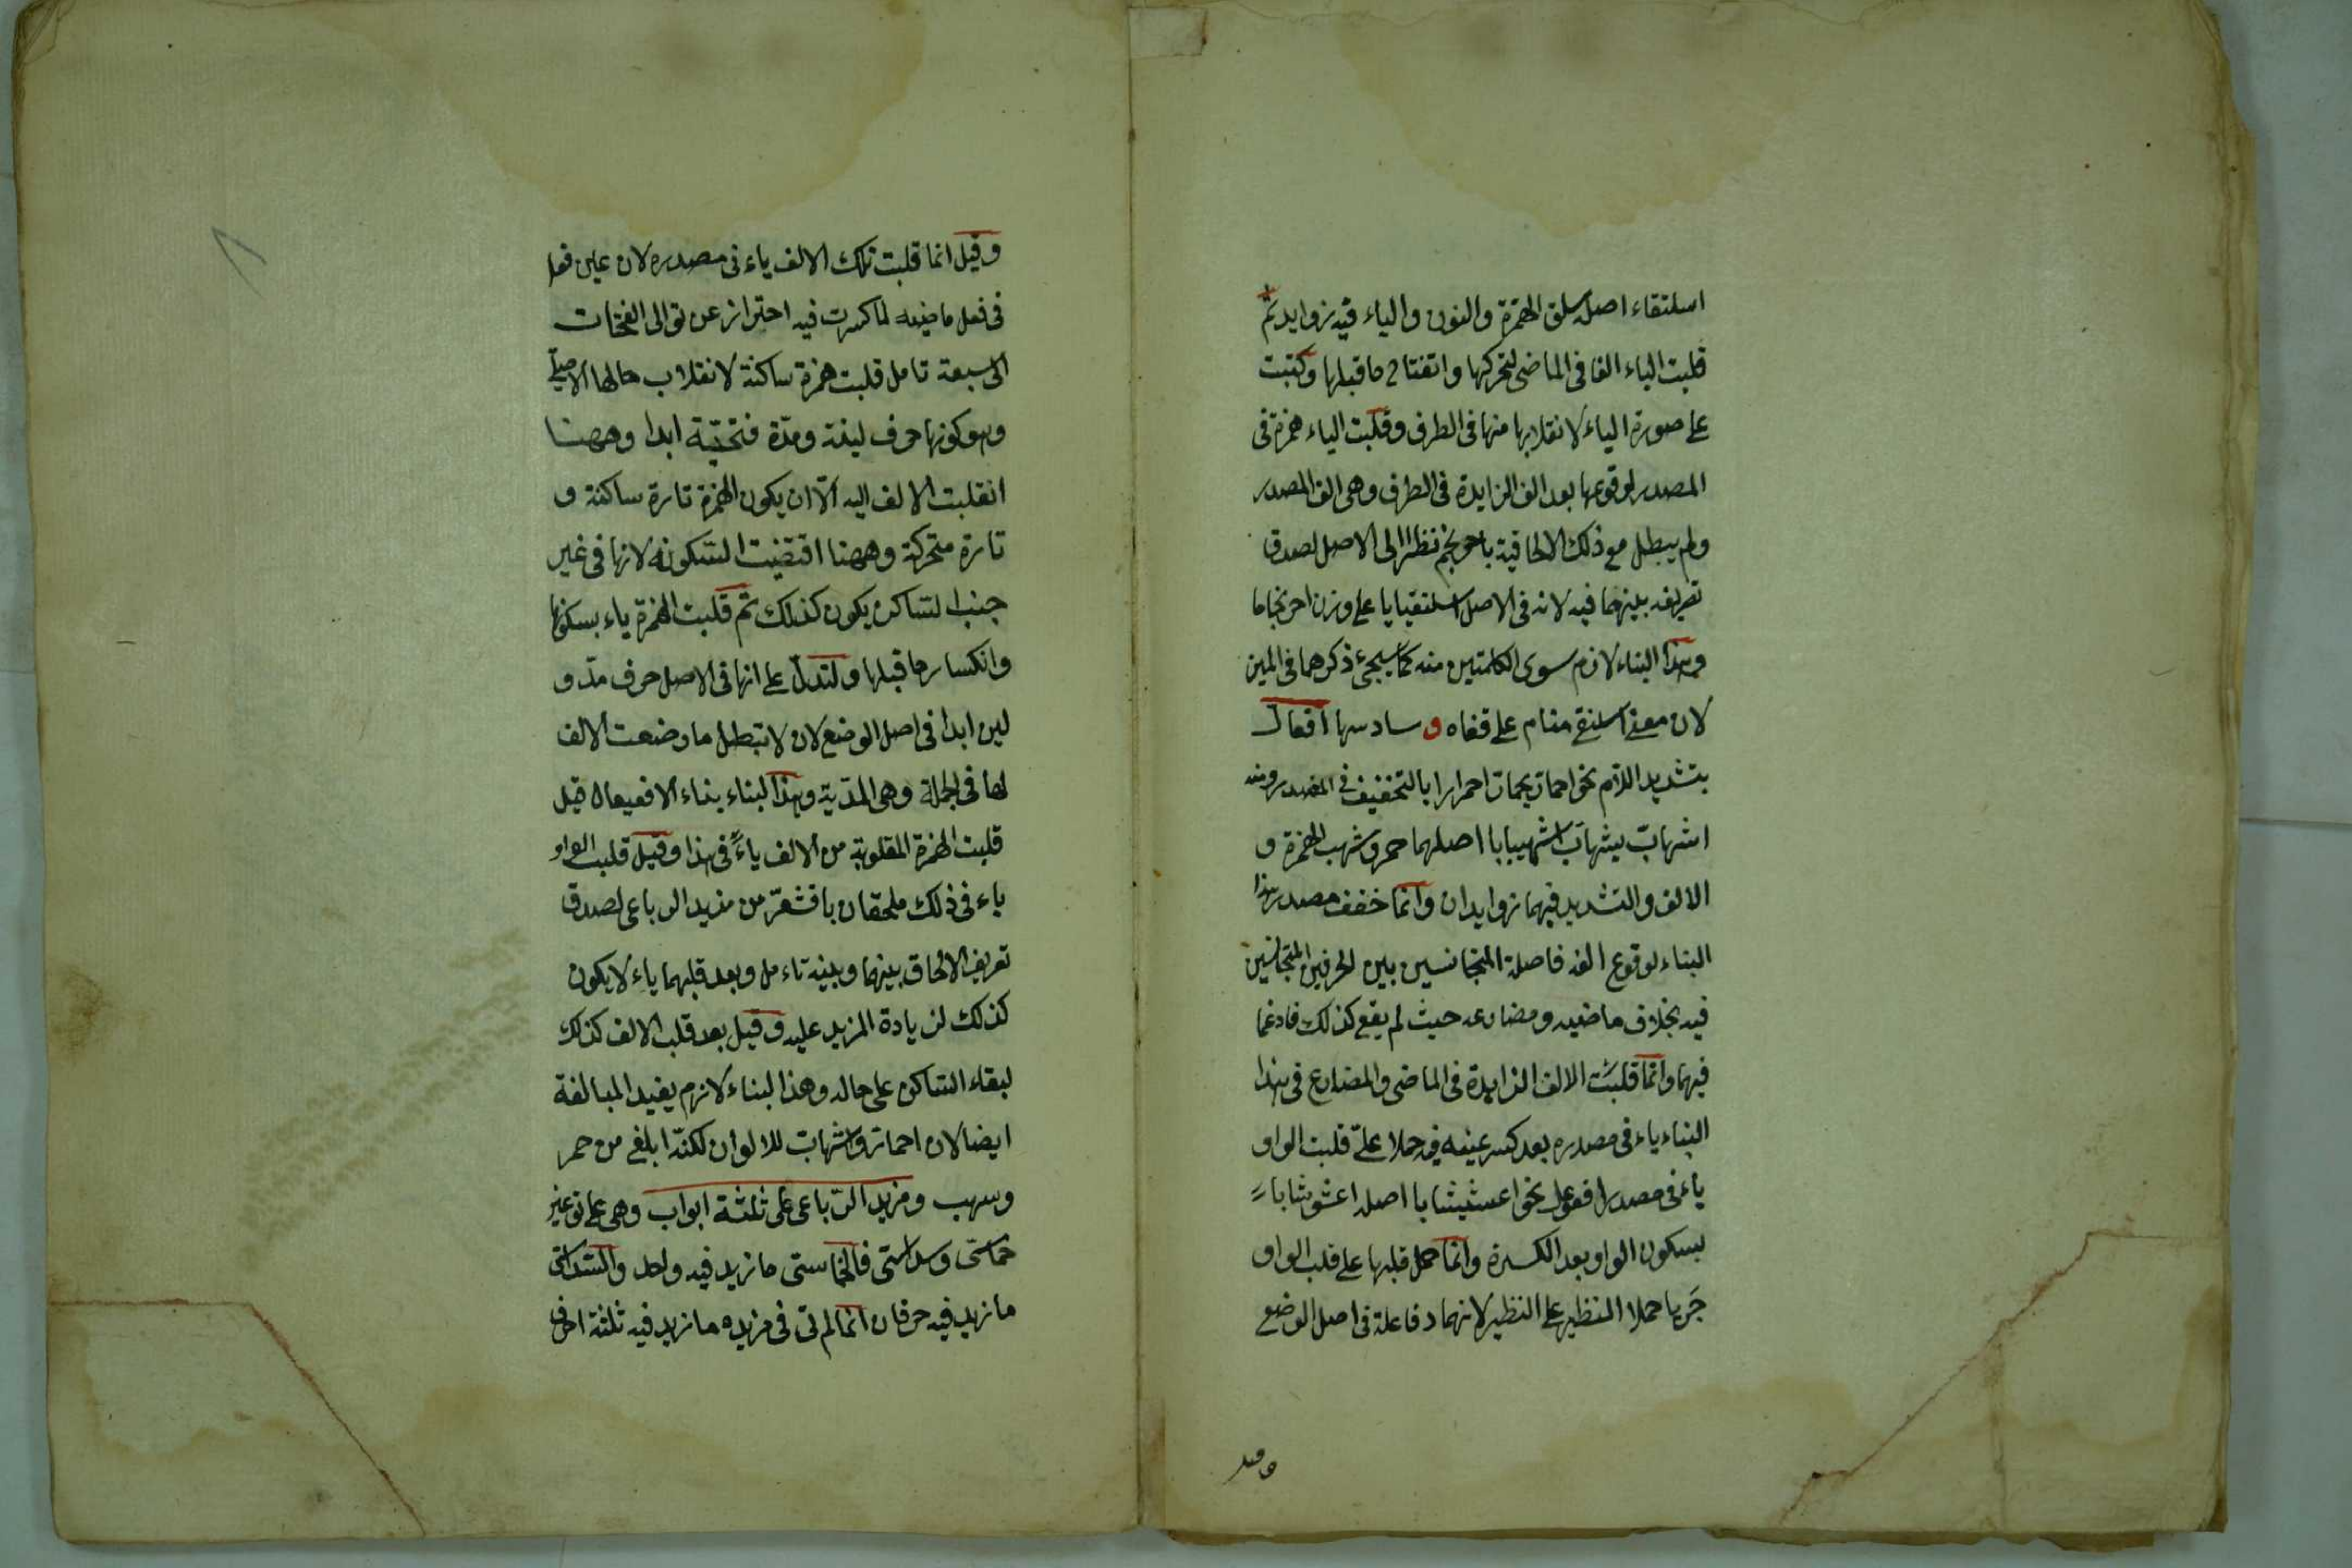 اسلنقاء اصله سلق الهمزة والنون والياء فيه زوايد ثم
قلبت الياء الفا فى الماضى لتحركها وانفتاح ماقبلها وكتبت
على صورة الياء لانقلابها منها فى الطرف وقلبت الياء همزة فى
المصدر لوقوعها بعد الف الزايدة فى الطرف وهى الف المصدر
ولم يبطل مع ذلك الالحاقية باحرنجم نظرا الى الاصل لصدق
تعريفه بينهما فيه لانه فى الاصل اسلنقيايا على وزن احرنجاما
وهذا البناء لازم سوى الكلمتين منه كما سيجئ ذكرهما فى المين
لان معنى اسلنقى منام على قفاه و سادسها افعال
بتشديد اللام نحو احمار يحمار احمرارا بالتخفيف فى المصدر ومنه
اشهاب يشهاب اشهيبابا اصلهما حمر وشهب الهمزة و
الالف والتشديد فيهما زوايدان وانما خفف مصدر هذا
البناء لوقوع الفه فاصلة المتجانسين بين الحرفين المتجانسين
فيه بخلاف ماضيه ومضارعه حيث لم يقع كذلك فادغما
فيهما وانما قلبت الالف الزايدة فى الماضى والمضارع فى هذا
البناء ياء فى مصدره بعد كسر عينه فيه حملا على قلبت الواو
ياء فى مصدر افعوعل نحو اعشيشابا اصله اعشوشابا
لسكون الواو بعد الكسرة وانما حمل قلبها على قلب الواو
جريا حملا النظير على النظير لانهما دفاعلة فى اصل الوضع
وقيل
وقيل انما قلبت تلك الالف ياء فى مصدره لان عين فعل
فى فعل ماضيه لما كسرت فيه احتراز عن توالى الفتحات
الى السبعة تامل قلبت همزة ساكنة لانقلاب حالها الاصلى
وهو كونها حرف لينة ومدّة فتحيّة ابدا وههنا
انقلبت الالف اليه الّا ان يكون الهمزة تارة ساكنة و
تارة متحركة وههنا اقتضيت السكونة لانها فى غير
جنب الساكن يكون كذلك ثم قلبت الهمزة ياء بسكونها
وانكسار ماقبلها ولتدل على انها فى الاصل حرف مدّ و
لين ابدا فى اصل الوضع لان لا تبطل ما وضعت الالف
لها فى الجملة وهى المدّية وهذا البناء بناء الافعيعال قيل
قلبت الهمزة المقلوبة من الالف ياءً فى هذا وقيل قلبت الواو
ياء فى ذلك ملحقان باقشعرّ من مزيد الرباعى لصدق
تعريف الالحاق بينهما وبينه تاءمل وبعد قلبهما ياء لا يكون
كذلك لزيادة المزيد عليه وقيل بعد قلب الالف كذلك
لبقاء الساكن على حاله وهذا البناء لازم يفيد المبالغة
ايضا لان احمارّ واشهابّ للالوان لكنّه ابلغ من حمر
وسهب ومزيد الرّباعى على ثلثة ابواب وهى على نوعين
خماسّى وسداسّى فالخماسى ما زيد فيه واحد والسّداسّى
ما زيد فيه حرفان انما لم ئ فى مزيده ما زيد فيه ثلثة احرف